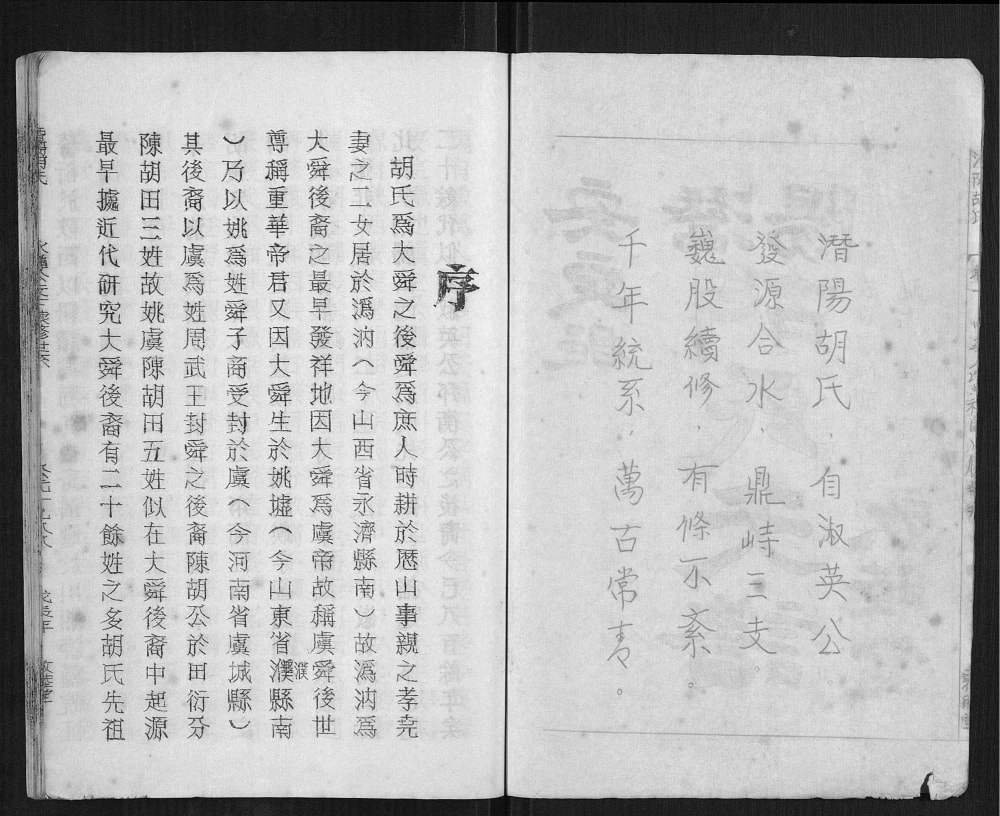 潛陽胡氏，自淑英公
發源合水，鼎峙三支。
巍股續修，有條不紊。
千年統系，萬古常青。
序
胡氏爲大舜之後舜爲庶人時耕於歷山事親之孝堯
妻之二女居於潙汭（今山西省永濟縣南）故潙汭爲
大舜後裔之最早發祥地因大舜爲虞帝故稱虞舜後世
尊稱重華帝君又因大舜生於姚墟（今山東省濮縣南
濮
）乃以姚爲姓舜子商受封於虞（今河南省虞城縣）
其後裔以虞爲姓周武王封舜之後裔陳胡公於田衍分
陳胡田三姓故姚虞陳胡田五姓似在大舜後裔中起源
最早據近代研究大舜後裔有二十餘姓之多胡氏先祖